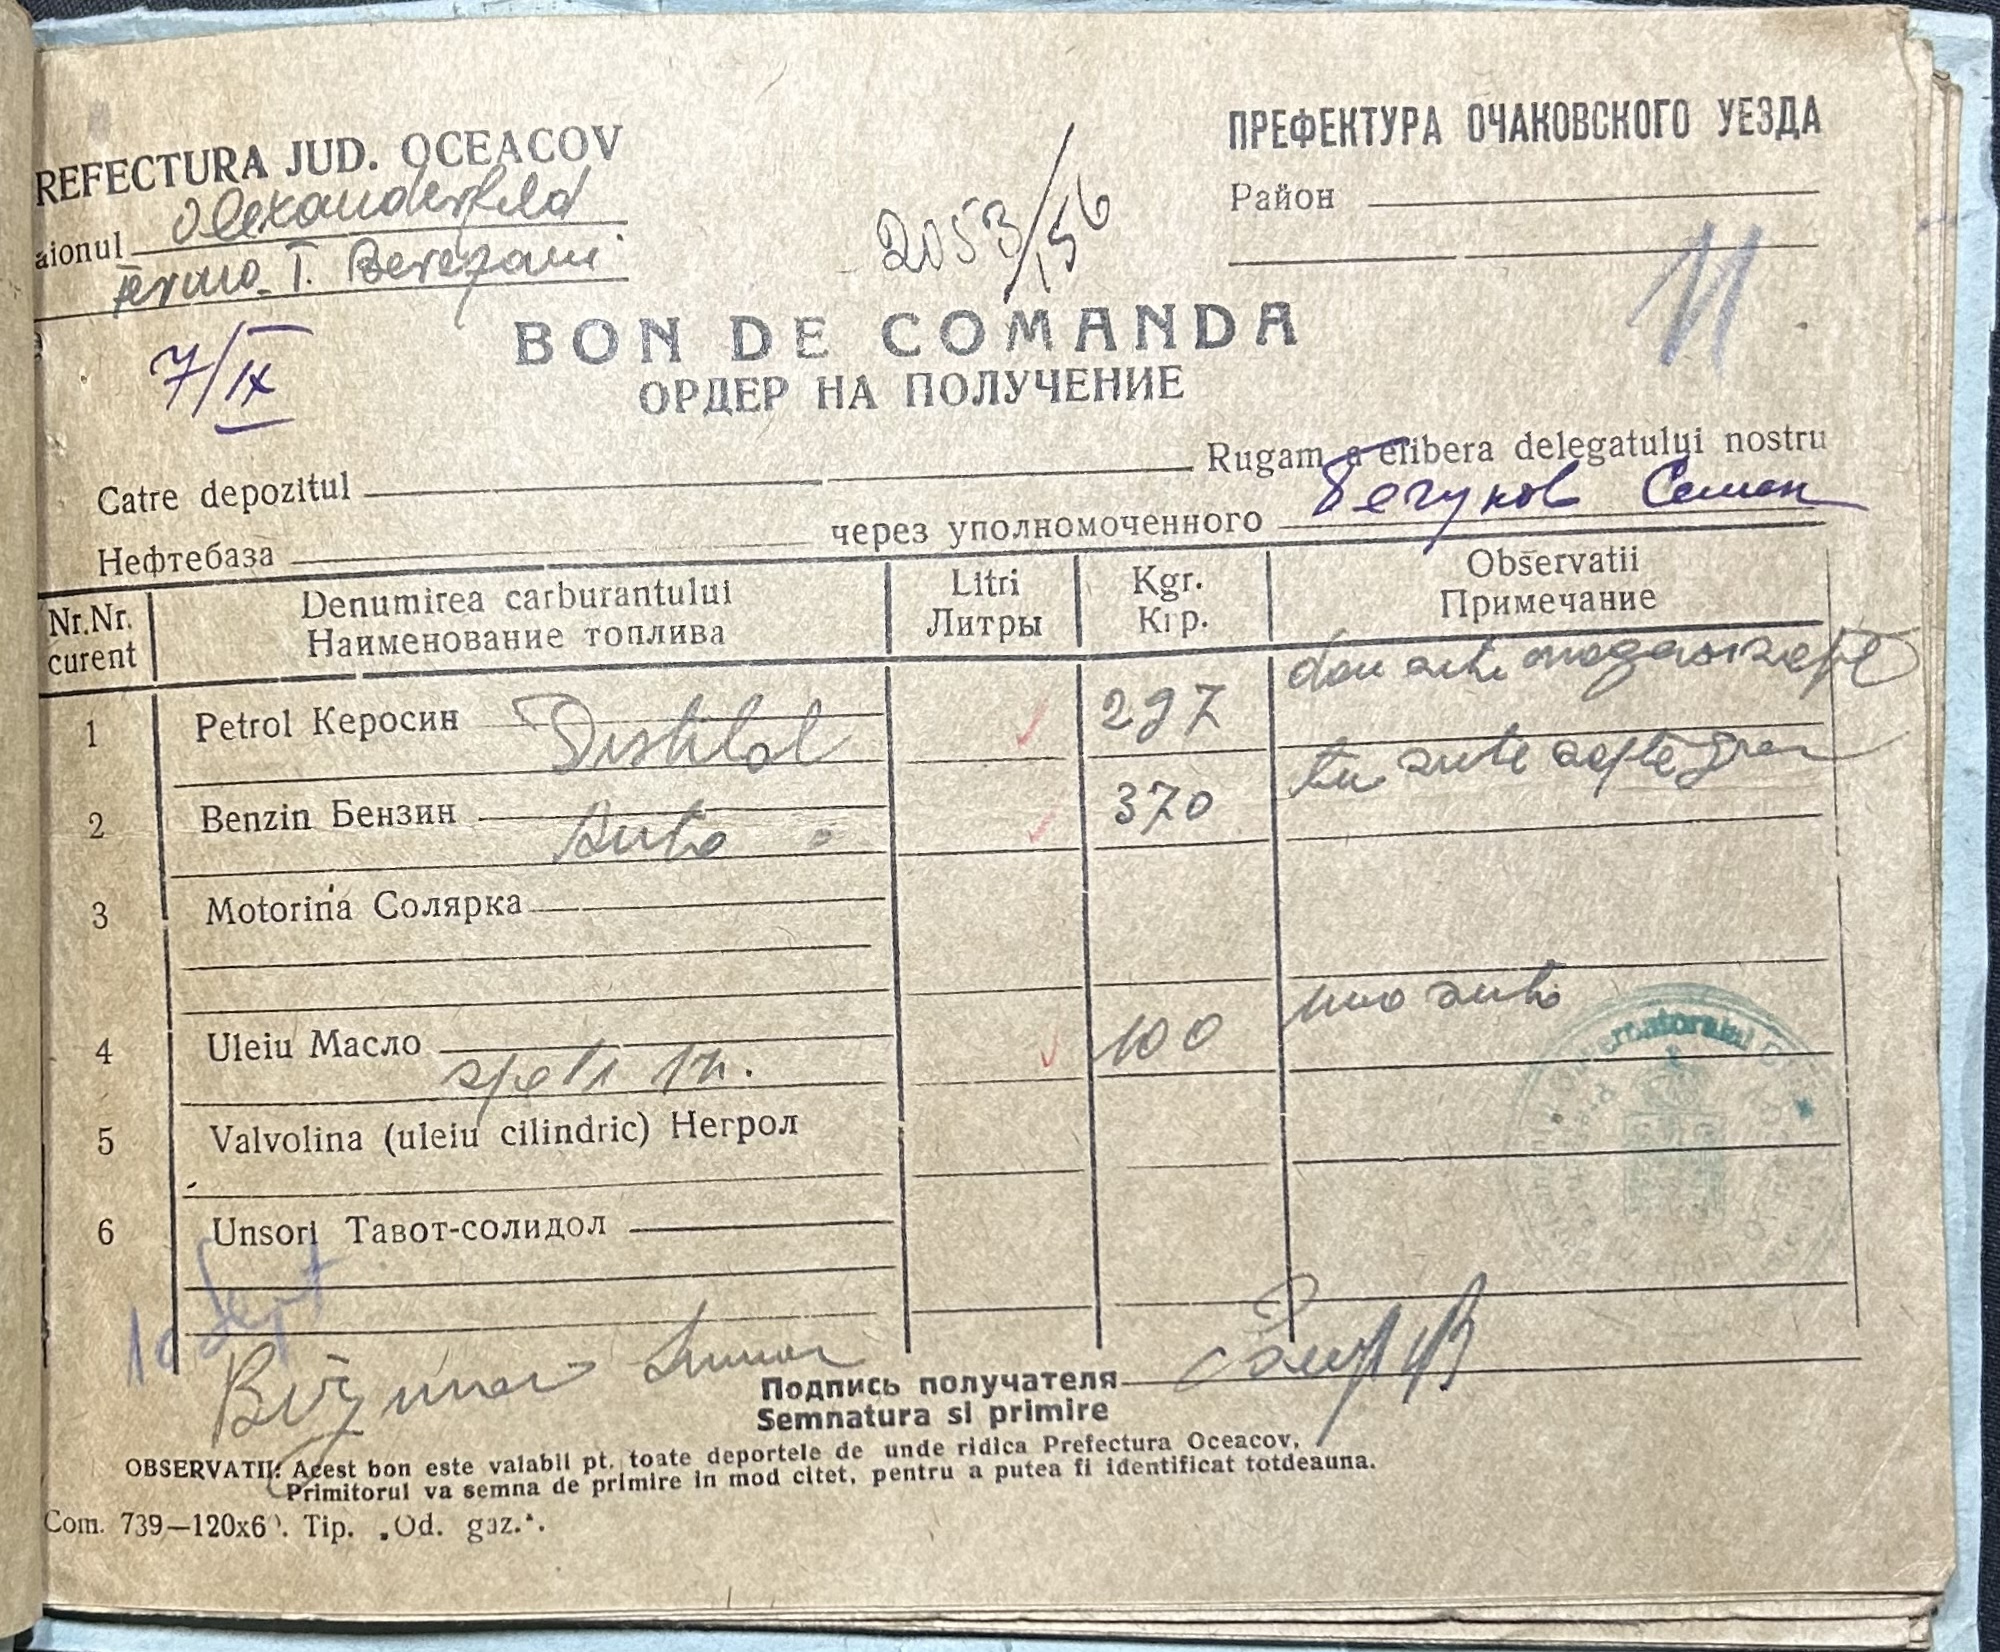 REFECTURA JUD. OCEACOV
aionul Alexanderfeld
Ferma T. Berezani
2053/56
ПРЕФЕКТУРА ОЧАКОВСКОГО УЕЗДА
Район
11
7/IX
BON DE COMANDA
ОРДЕР НА ПОЛУЧЕНИЕ
Catre depozitul Rugam a elibera delegatului nostru
Нефтебаза через уполномоченного Бегунов Семен
Nr.Nr. curent Denumirea carburantului Litri Kgr. Observatii
Наименование топлива Литры Кгр. Примечание
1 Petrol Керосин Distilat 297
2 Benzin Бензин Auto 370
3 Motorina Солярка
4 Uleiu Масло 100 una suta
5 Valvolina (uleiu cilindric) Негрол
6 Unsori Тавот-солидол
10 Sept
Подпись получателя
Semnatura si primire
OBSERVATII: Acest bon este valabil pt. toate deportele de unde ridica Prefectura Oceacov,
Primitorul va semna de primire in mod citet, pentru a putea fi identificat totdeauna.
Com. 739—120x6 . Tip. „Od. gaz.".